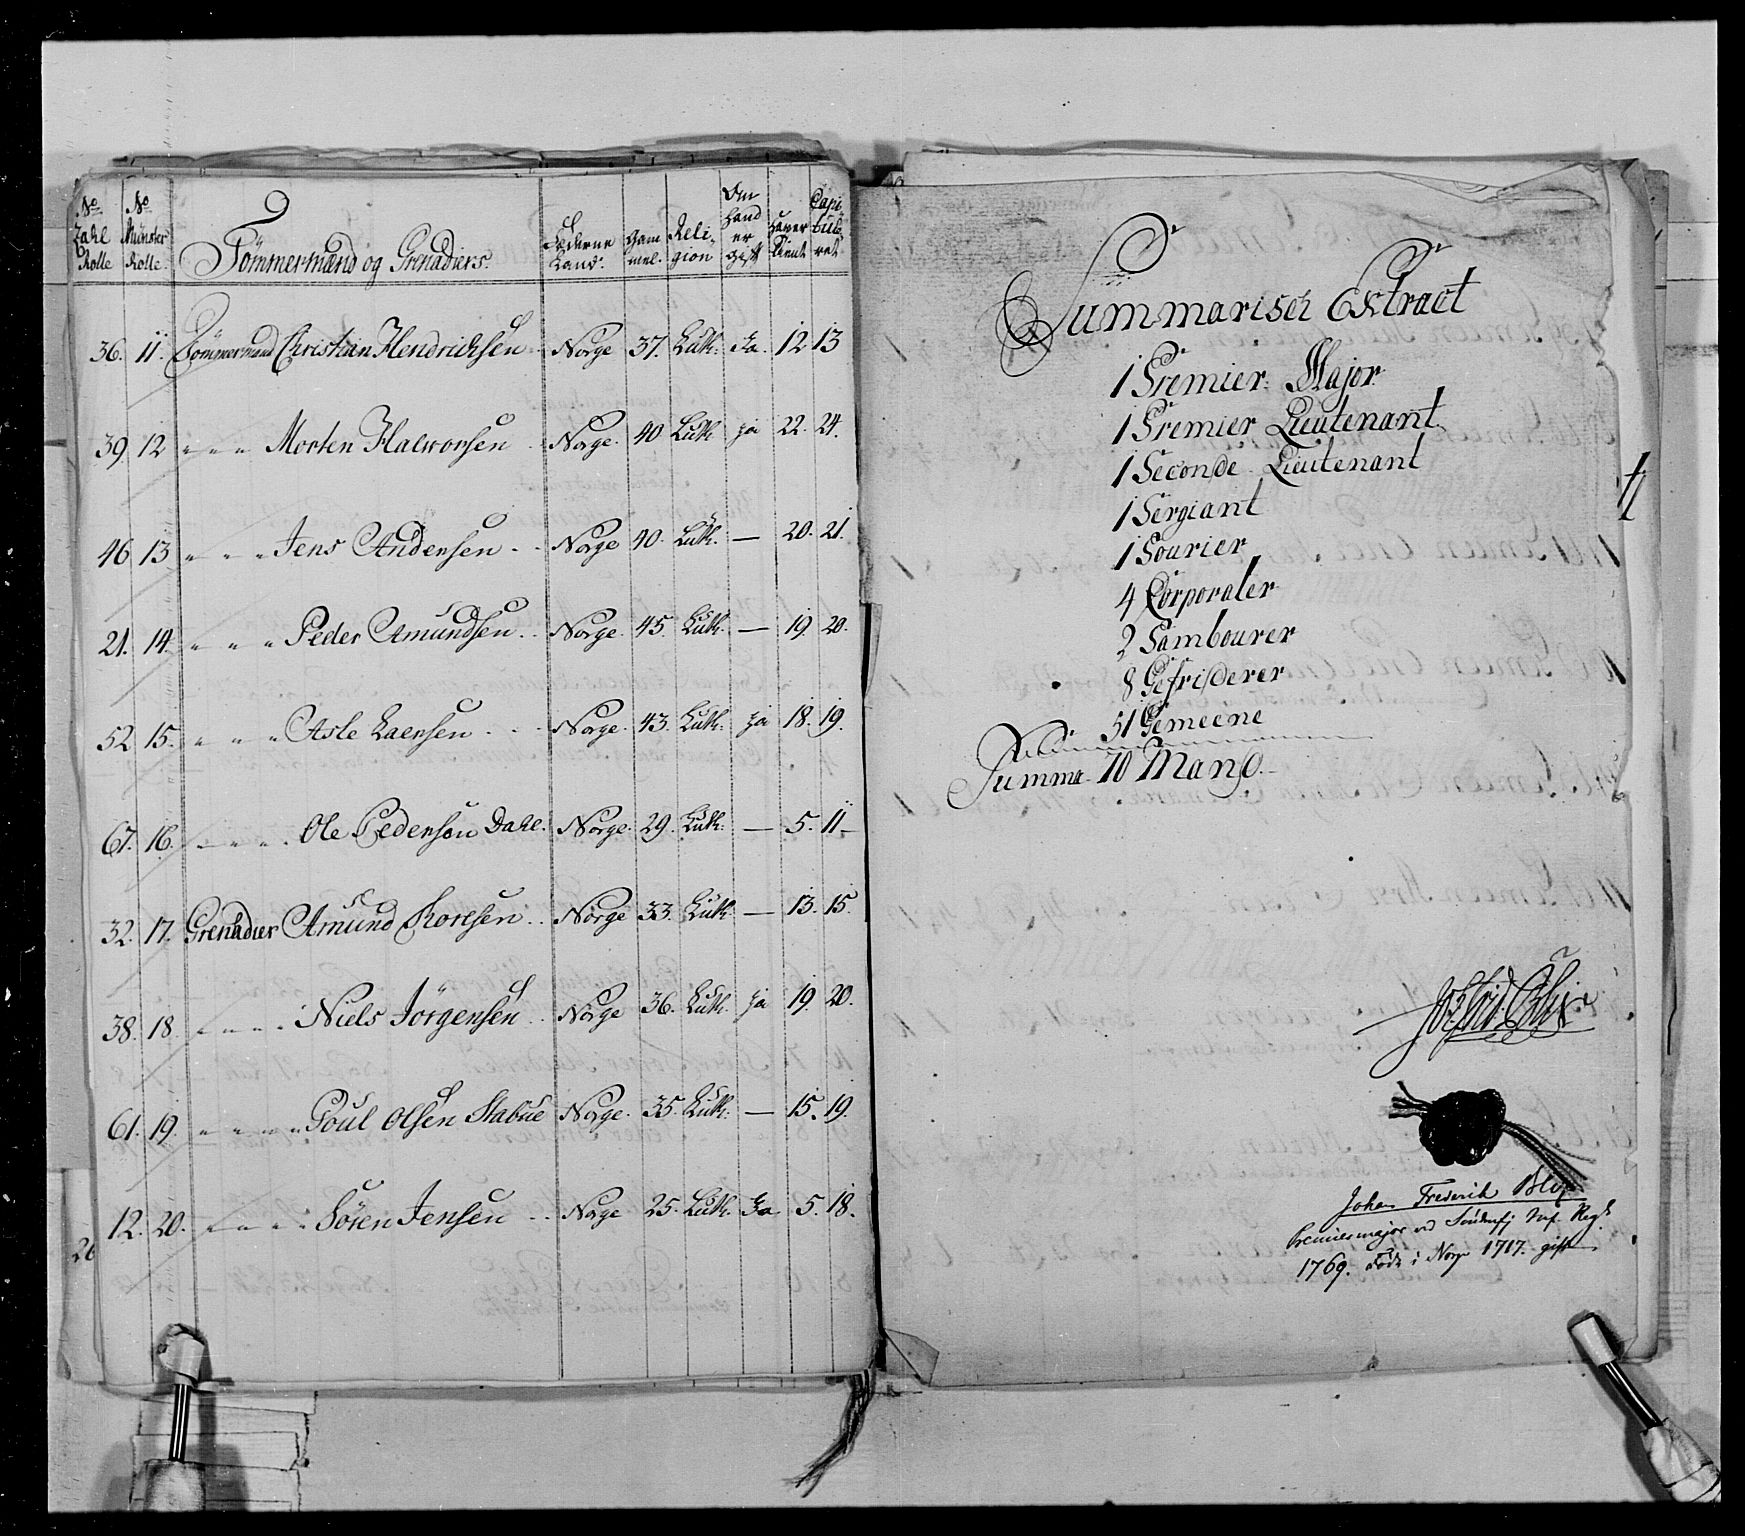 No Zahl Rolle | No Mönster Rolle | Tömmermænd og Grenadiers. | Føderne Land. | Gam mel. | Reli- gion | Om hand er gift | Haver tient | Capi tule- ret
36. 11. Tömmermand Christian Hendrichsen Norge 37. Luth. Ja. 12 13
39 12 " " " Morten Halworsen Norge. 40 Luth ja 22. 24.
46 13 " " " Jens Andersen Norge 40. Luth. — 20. 21.
21. 14. " " " Peder Amundsen Norge. 45. Luth. — 19. 20.
52 15. " " " Asle Laersen Norge. 43. Luth. ja 18. 19.
67. 16. " " " Ole Pedersen Dahl. Norge. 29. Luth. — 5. 11
32. 17. Grenadier Amund Thoresen Norge 33. Luth — 13. 15.
38. 18. " " " Niels Jörgensen Norge 36. Luth. ja 19. 20.
61. 19. " " " Poul Olsen Stabue Norge. 35. Luth. — 15. 19.
12. 20. " " " Sören Jensen Norge 25. Luth. Ja. 5. 18.
26
Summarisch Extract
1 Premier Major
1 Premier Lieutenant
1 Seconde Lieutenant
1 Sergiant
1 Fourier
4 Corporaler
2 Tambourer
8 Gefriderer
51 Gemeene
Summa 70 Mand.
Johan Frederik Blix
Premiermajor ved Søndenfj Inf. Regt.
1769. Født i Norge 1717. gift